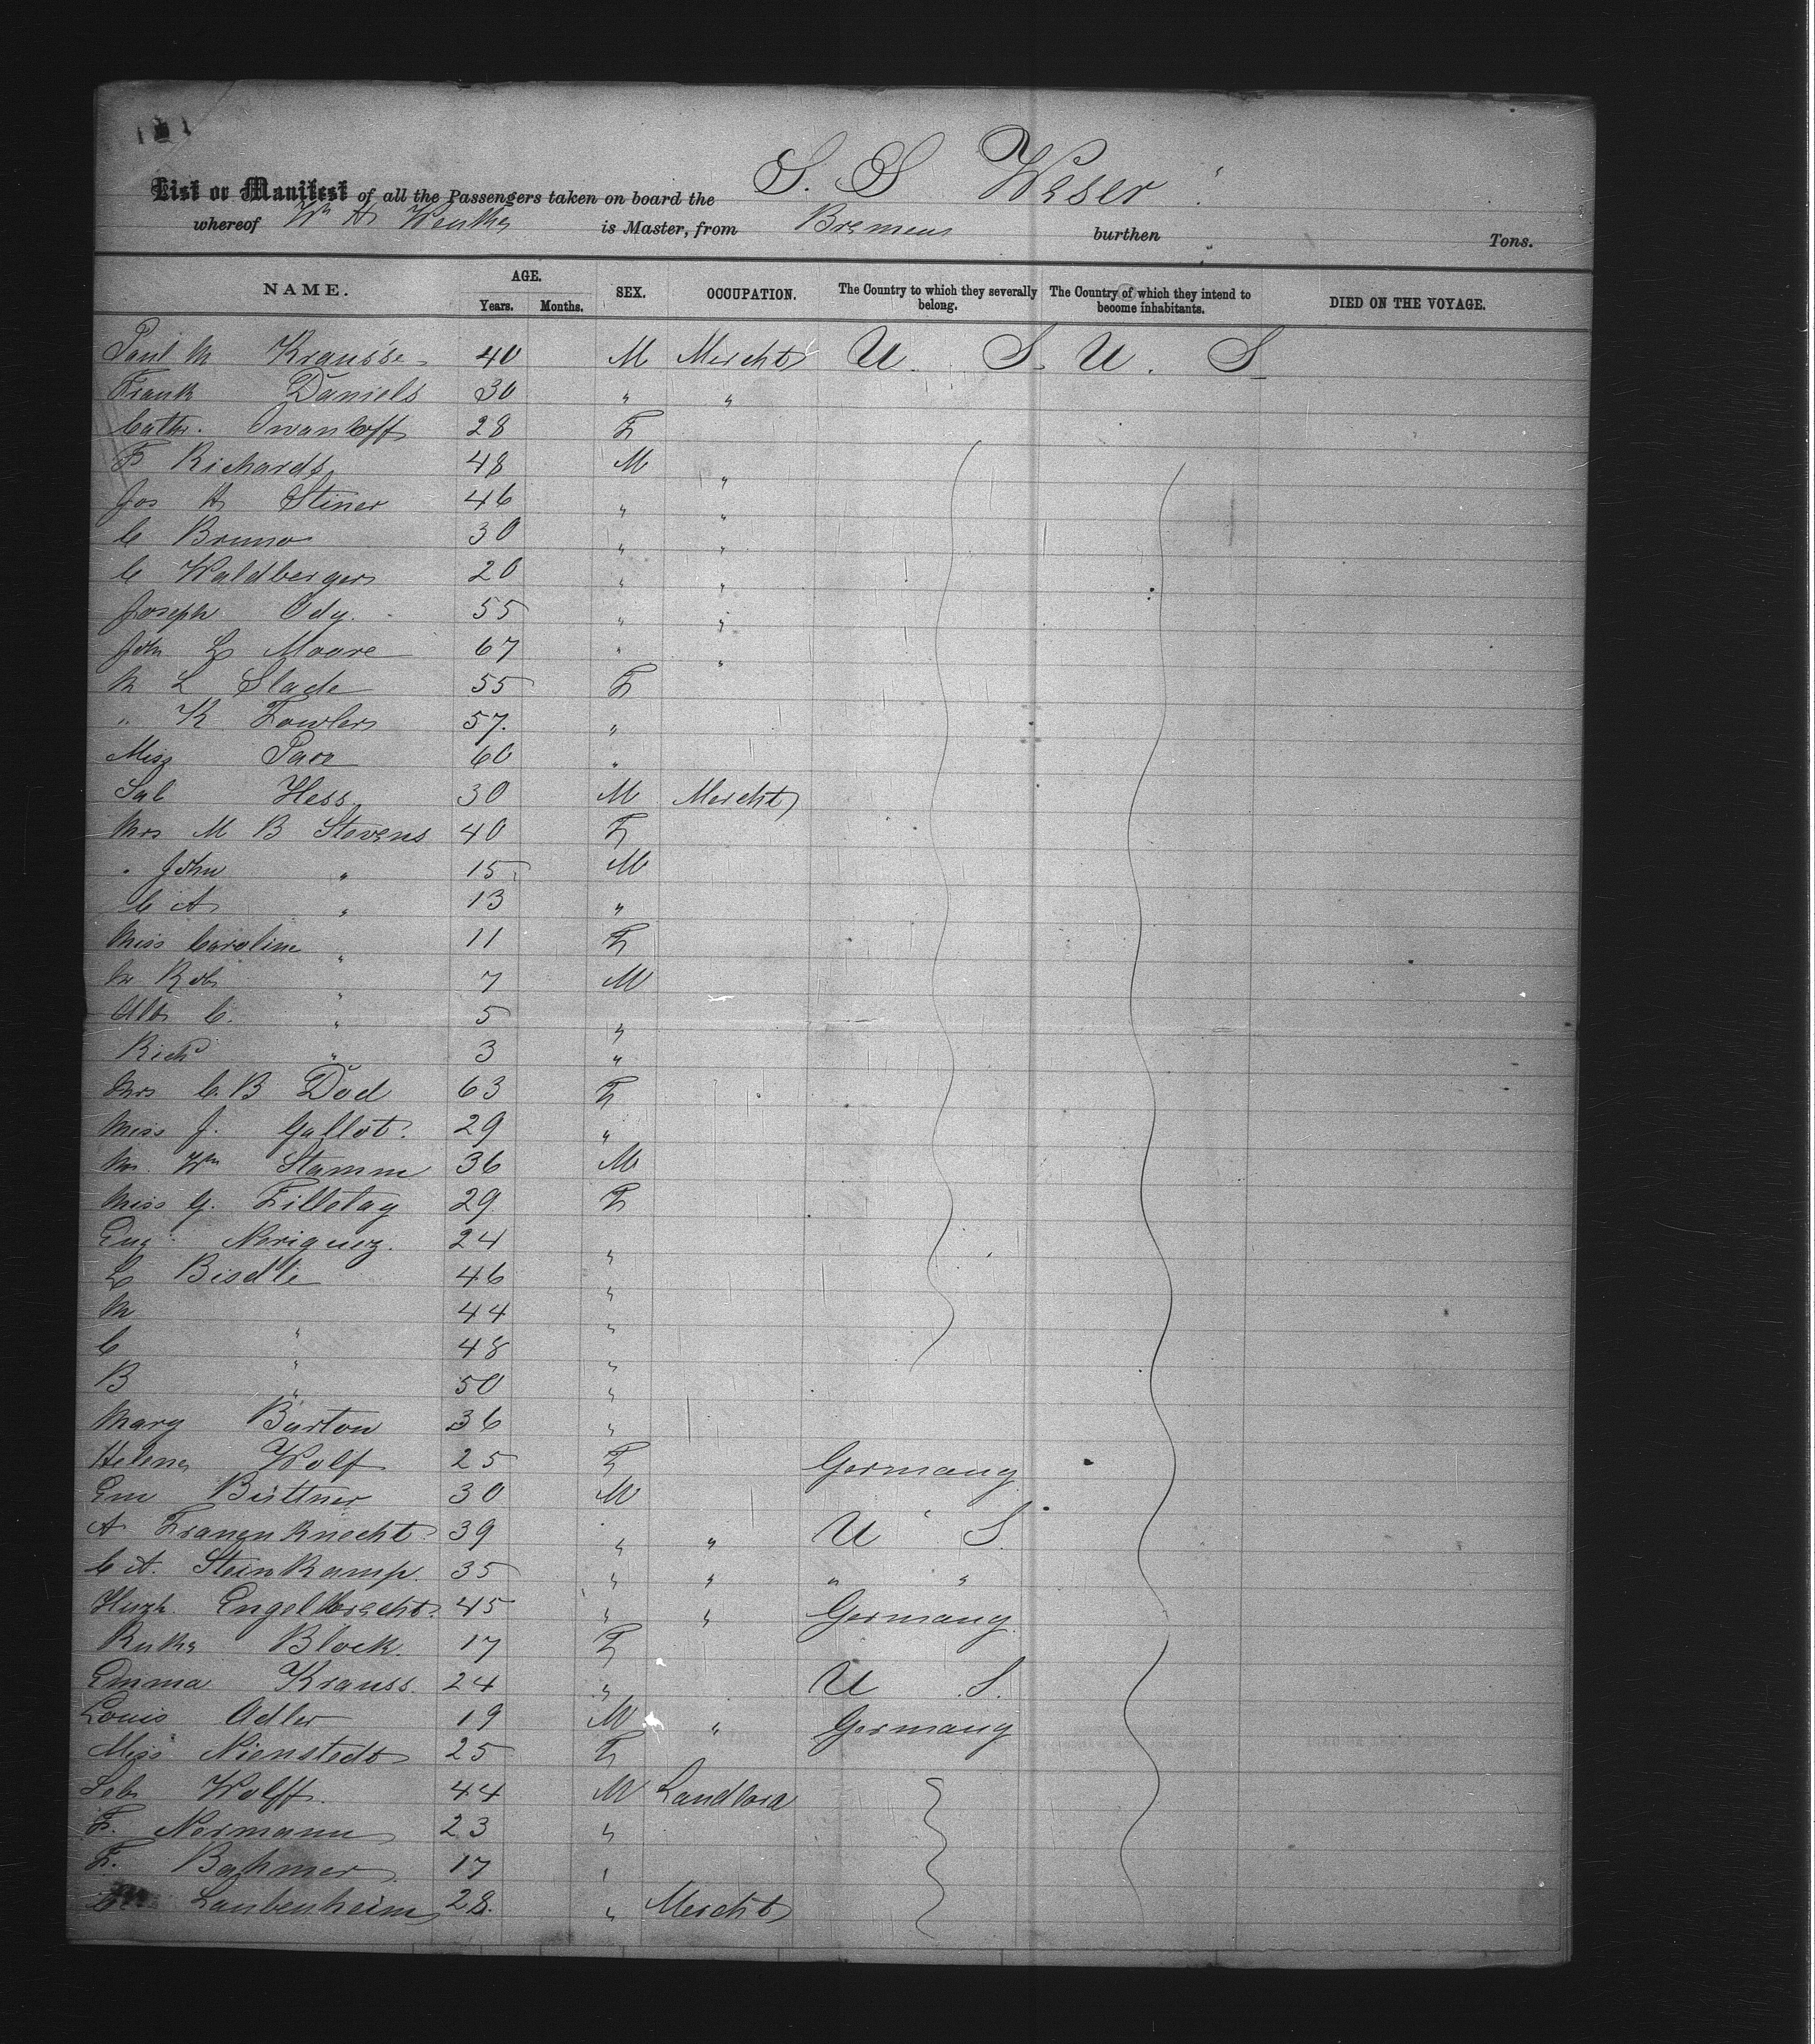 S. S Weser
List or Manifest of all the Passengers taken on board the
whereof Wm is Master, from Bremen burthen Tons.
NAME. AGE. SEX. OCCUPATION. The Country to which they severally belong. The Country of which they intend to become inhabitants. DIED ON THE VOYAGE.
Years. Months.
Paul M Krausse 40 M Mercht U. S. U. S
Frank Daniels 30 " "
Cath. Iwankoff 28 F
F Richards 48 M "
Jos H Stiner 46 " "
C Bruno 30 " "
C Waldberger 20 " "
Joseph Ody. 55 " "
John L Moore 67 " "
M L Slade 55 F
" K Fowler 57. "
Miss 60 "
Sal Hess 30 M Mercht
Mrs M B Stevens 40 F
" John " 15 M
C A " 13 "
Miss Caroline " 11 F
Rob " 7 M
Alb C. " 5 "
Richd " 3 "
Mrs C. B Dod 63 F
Miss J. Gallot. 29 "
Mr. Wm Stamm 36 M
Miss G. Filletag 29 F
Eug Neriquez. 24 "
L Bisdle 46 "
M " 44 "
C " 48 "
B " 50 "
Mary Burton 36 "
Helene Wolf 25 F Germany
Em Büttner 30 M
A Frauenknecht 39 " " U S.
C A. Steinkamp. 35 " " " "
Engelbrecht. 45 " " Germany
Block. 17 F
Emma Krauss. 24 " U S.
Louis Adler 19 M " Germany
Miss Nienstedt 25 F
Seb Wolff. 44 M Landlord
F. Normann 23 "
F. Bahmer 17 "
C Laubenheim 28. " Mercht